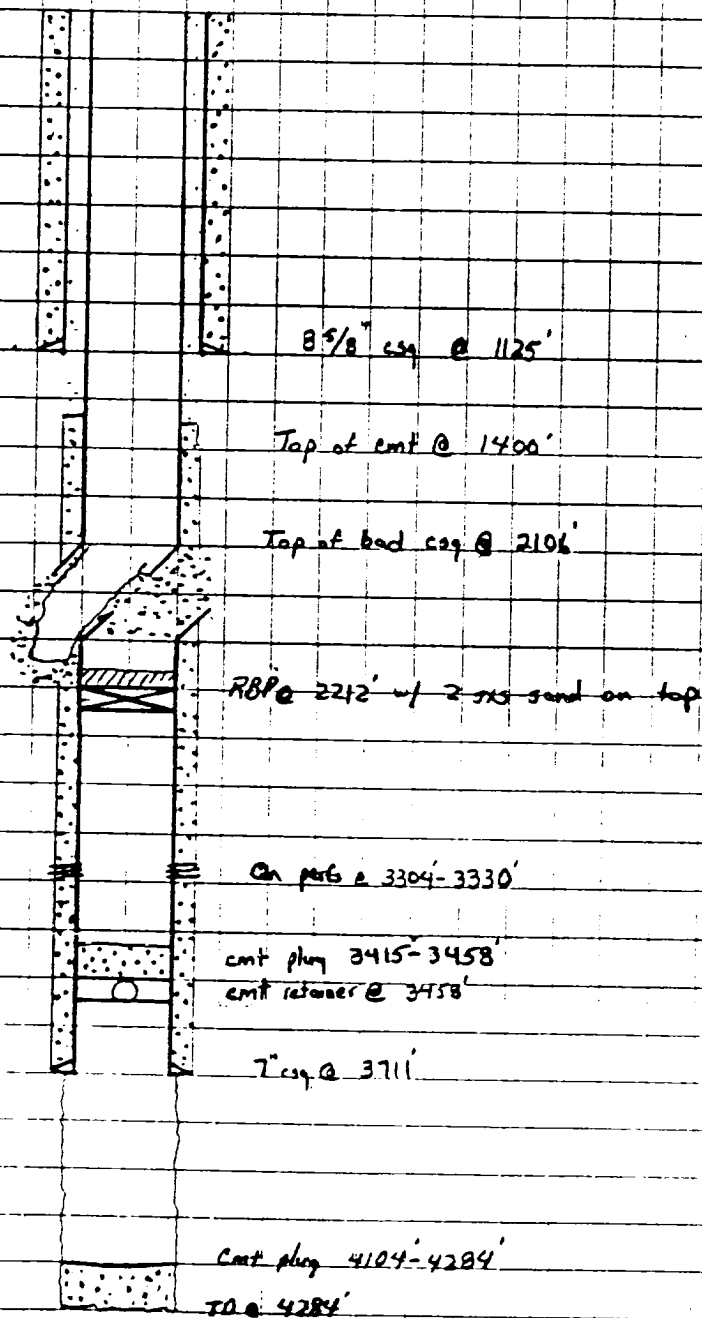 8 5/8" csg @ 1125'
Top of cmt @ 1400'
Top of bad csg @ 2106'
RBP @ 2212' w/ 2 sxs sand on top
Qn perfs @ 3304'-3330'
cmt plug 3415'-3458'
cmt retainer @ 3458'
7" csg @ 3711'
Cmt plug 4104'-4284'
TD @ 4284'